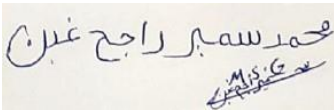 محمد سمير راجح غبن
M.S.G